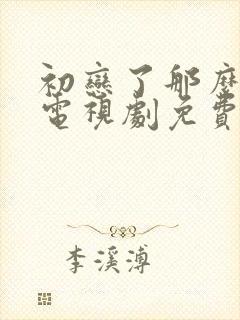 初戀了那麼
電視劇免費
李溪溥